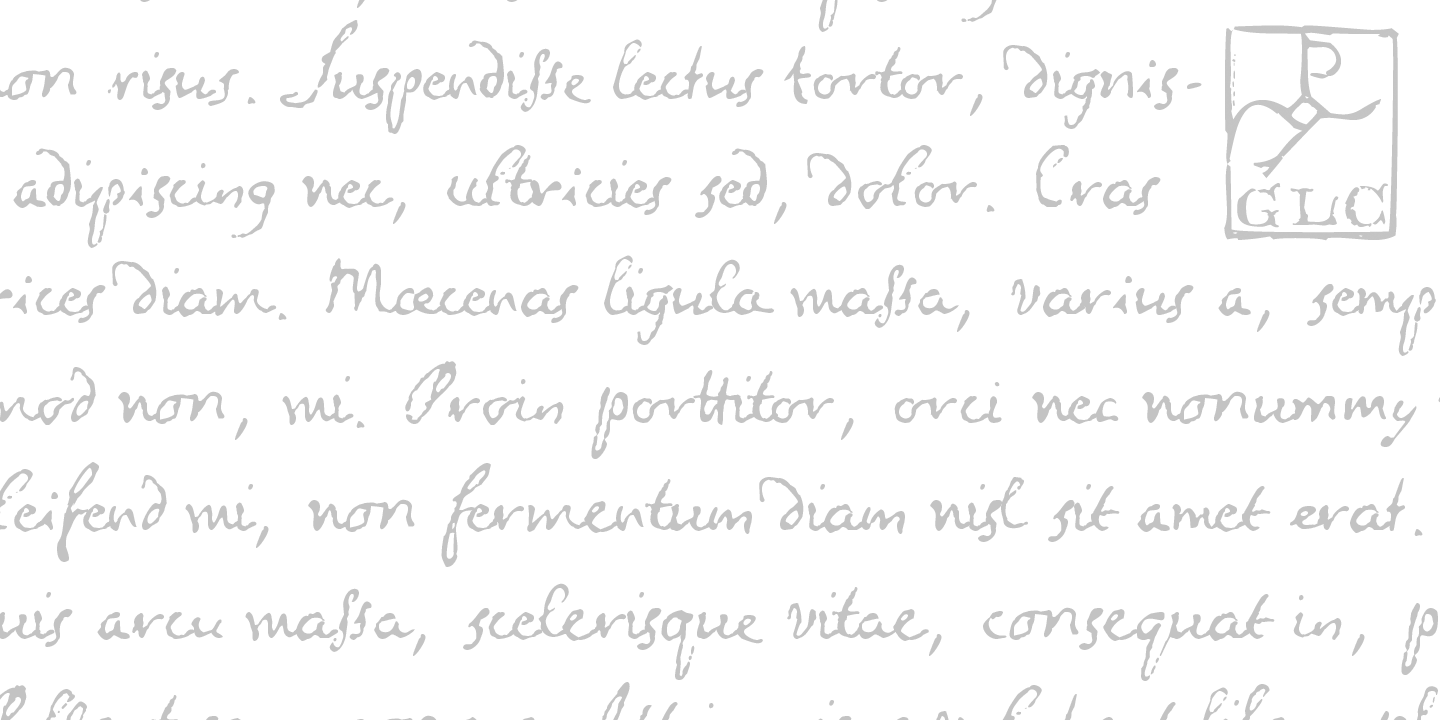 non risus. Suspendisse lectus tortor, dignis-
adipiscing nec, ultricies sed, dolor. Cras
GLC
rices diam. Mæcenas ligula massa, varius a, semp
mod non, mi. Proin porttitor, orci nec nonummy
leifend mi, non fermentum diam nisl sit amet erat.
uis arcu massa, scelerisque vitae, consequat in, p